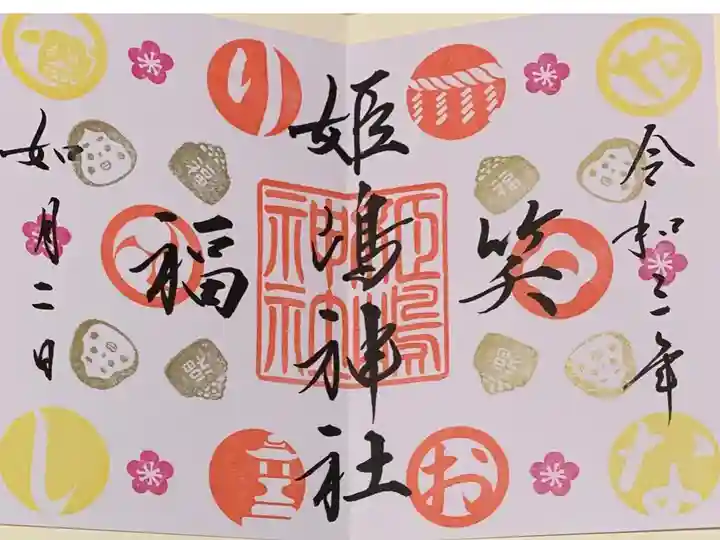 令和三年
笑
姫嶋神社
福
如月二日
姫嶋
神社
や
り
な
お
し
福
福